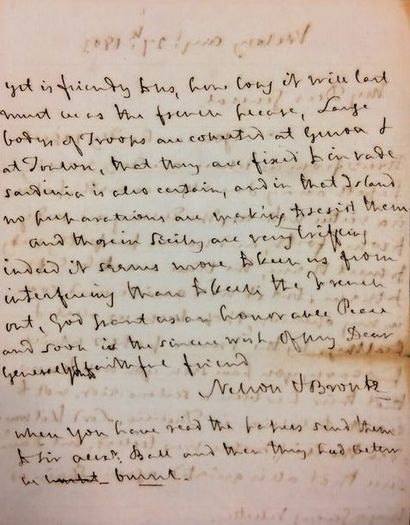 Victory Augt. 27th. 1803
yet is friendly to us, how long it will last
must be as the french please, Large
bodys of Troops are collected at Genoa &
at Toulon, that they are fixed to invade
sardinia is also certain, and in that Island
no preparations are making to resist them
and those in Sicily are very triffling
indeed it seems more to keep us from
interfering than to keep the french
out, God grant us an honorable Peace
and soon is the sincere wish of My Dear
General Your faithful friend
Nelson & Bronte
when you have read the papers send them
to Sir Alexr. Ball and then they had better
be burnt.